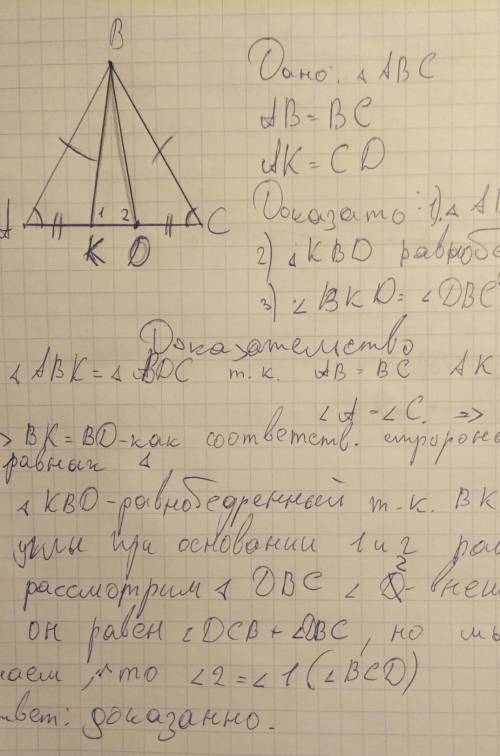 B
A
C
K
D
1
2
Дано: ∆ ABC
AB = BC
AK = CD
Доказато: 1). ∆ A
2) ∆ KBD равнобе
3) ∠BKD = ∠DBC
Доказателство
∆ ABK = ∆ BDC т.к. AB = BC AK
∠A = ∠C. =>
> BK = BD - как соответств. стророна
равных ∆
∆ KBD - равнобедренный т.к. BK
углы при основании 1 и 2 рав
рассмотрим ∆ DBC ∠ 2 - внеш
он равен ∠DCB + ∠DBC, но мы
наем, что ∠2 = ∠1 (∠BCD)
твет: доказанно.